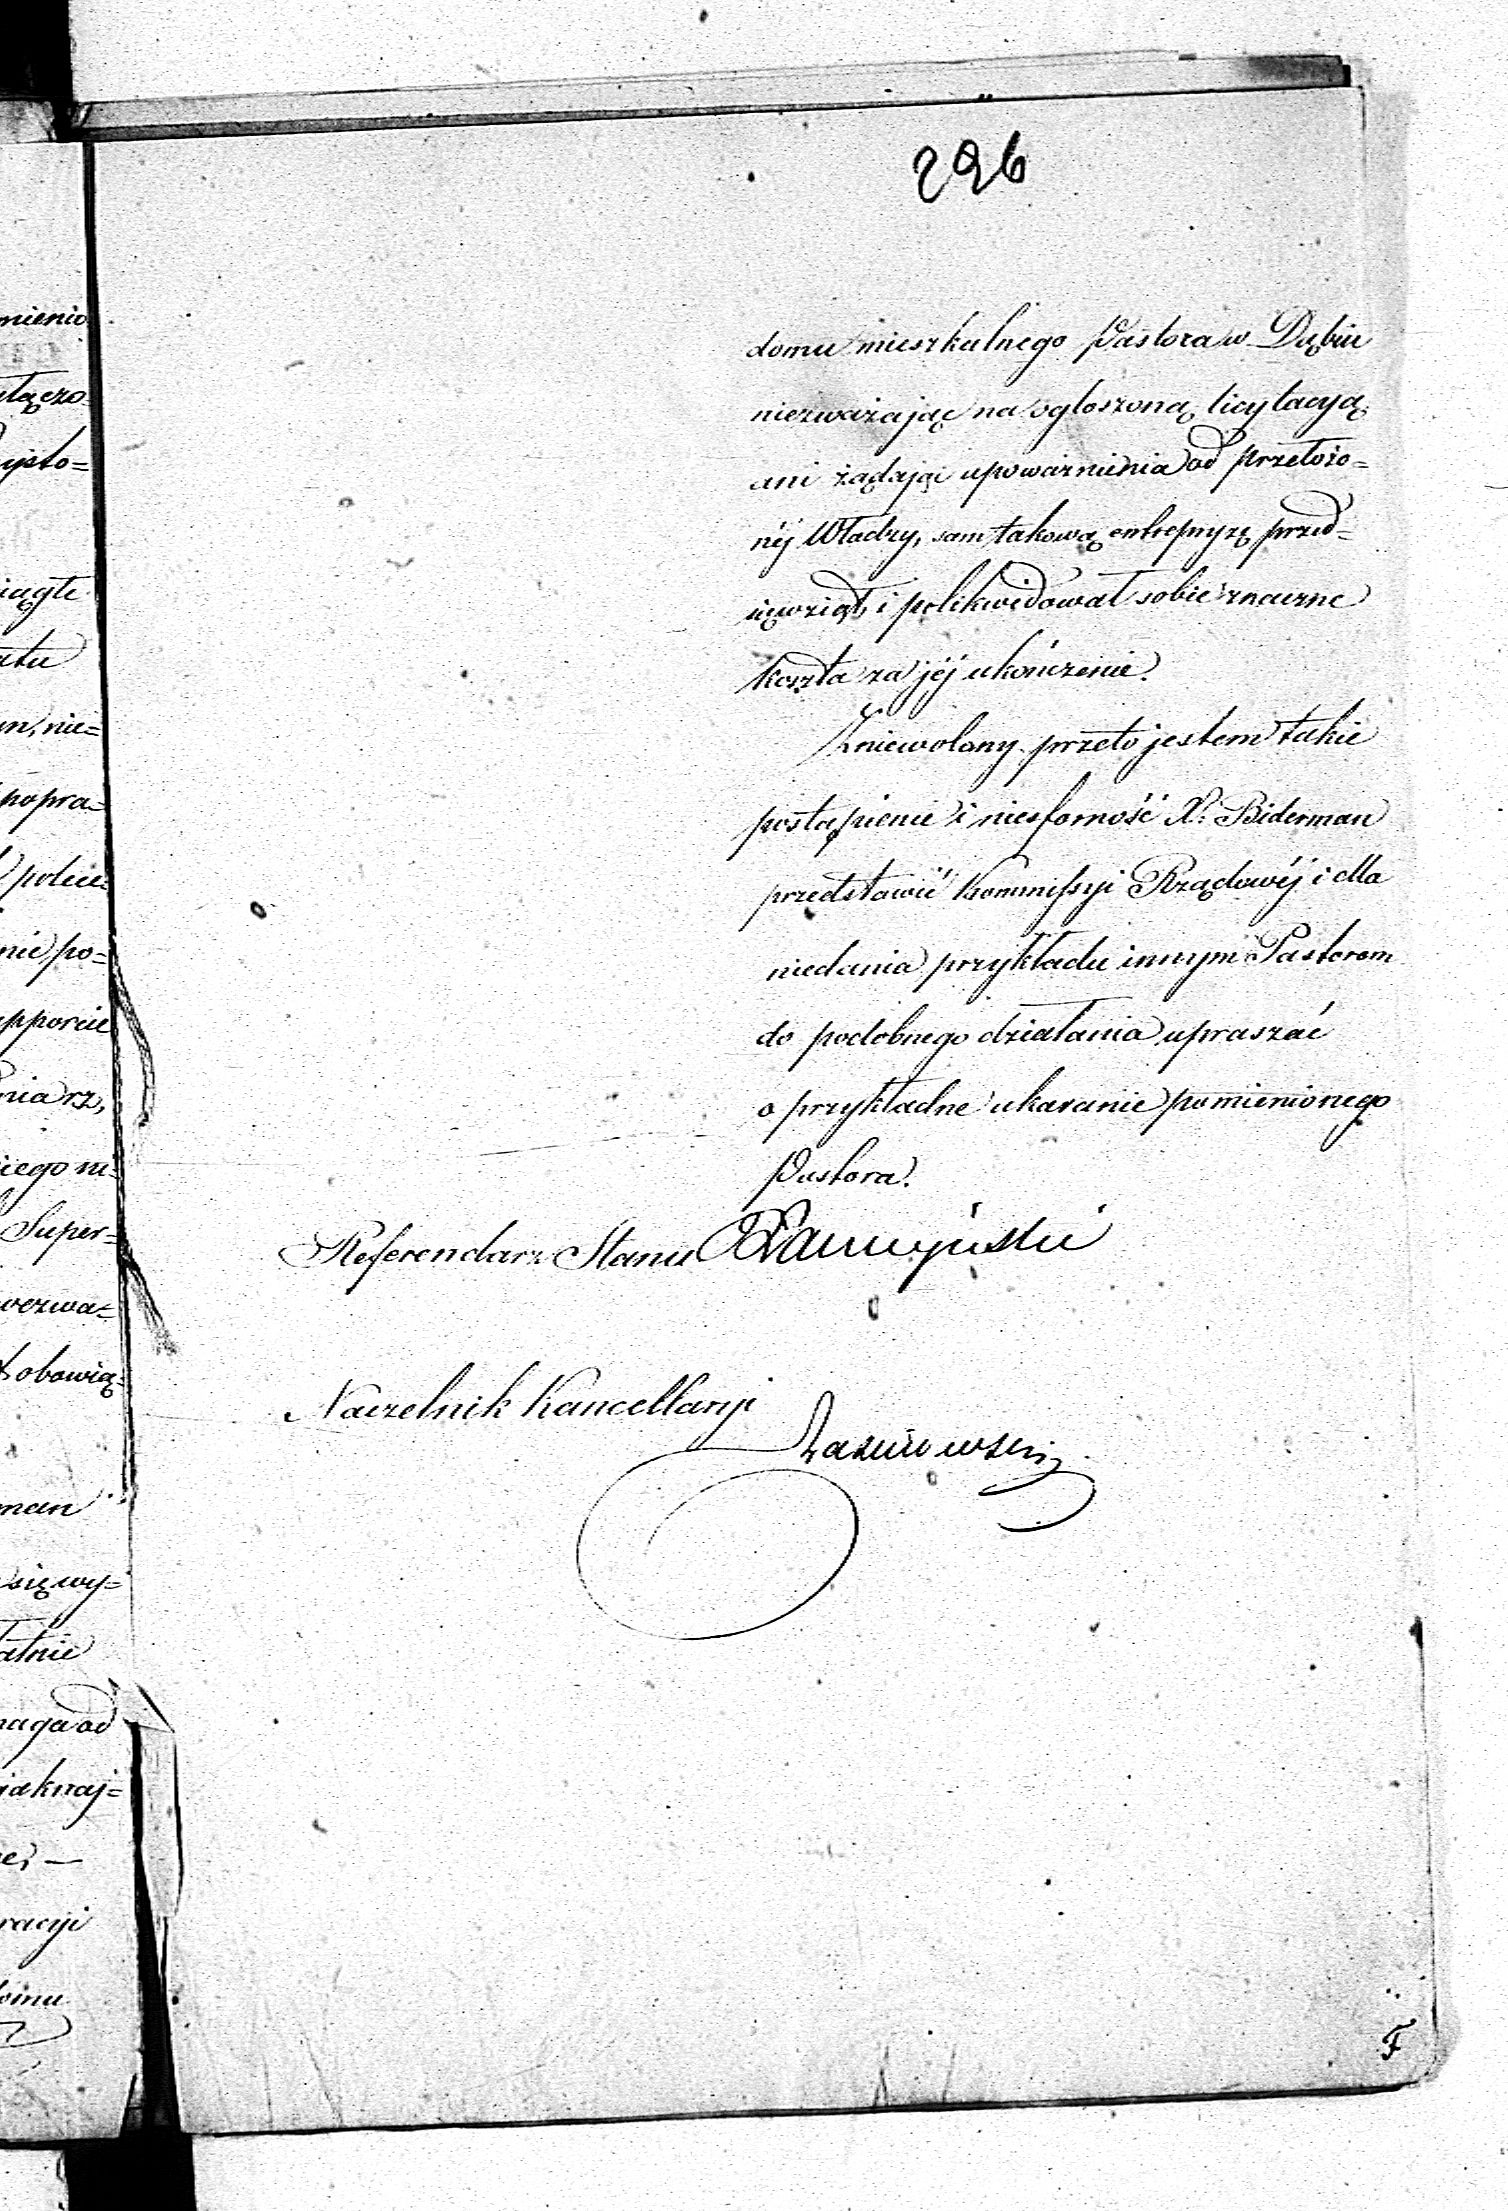 296
domu mieszkalnego Pastora w Dąbiu
niezważając na ogłoszoną licytacyą
ani żądając upoważnienia od przełożo=
néj Władzy, sam takową entrepryzę przed=
sięwziął, i polikwidował sobie znaczne
koszta za jéj ukończenie.
Zniewolony przeto jestem takie
postąpienie i niesforność X. Biderman
przedstawić Kommissyi Rządowéj i dla
niedania przykładu innym Pastorom
do podobnego działania upraszać
o przykładne ukaranie pomienionego
Pastora.
Referendarz Stanu
Naczelnik Kancellaryi
mienio
łączo=
iągłe
atu
nie=
popra=
polece=
nie po=
rapporcie
niarz,
iego
Super=
wezwa=
obowią=
man
się wy=
atnie
maga od
jaknaj=
racyi
domu
F